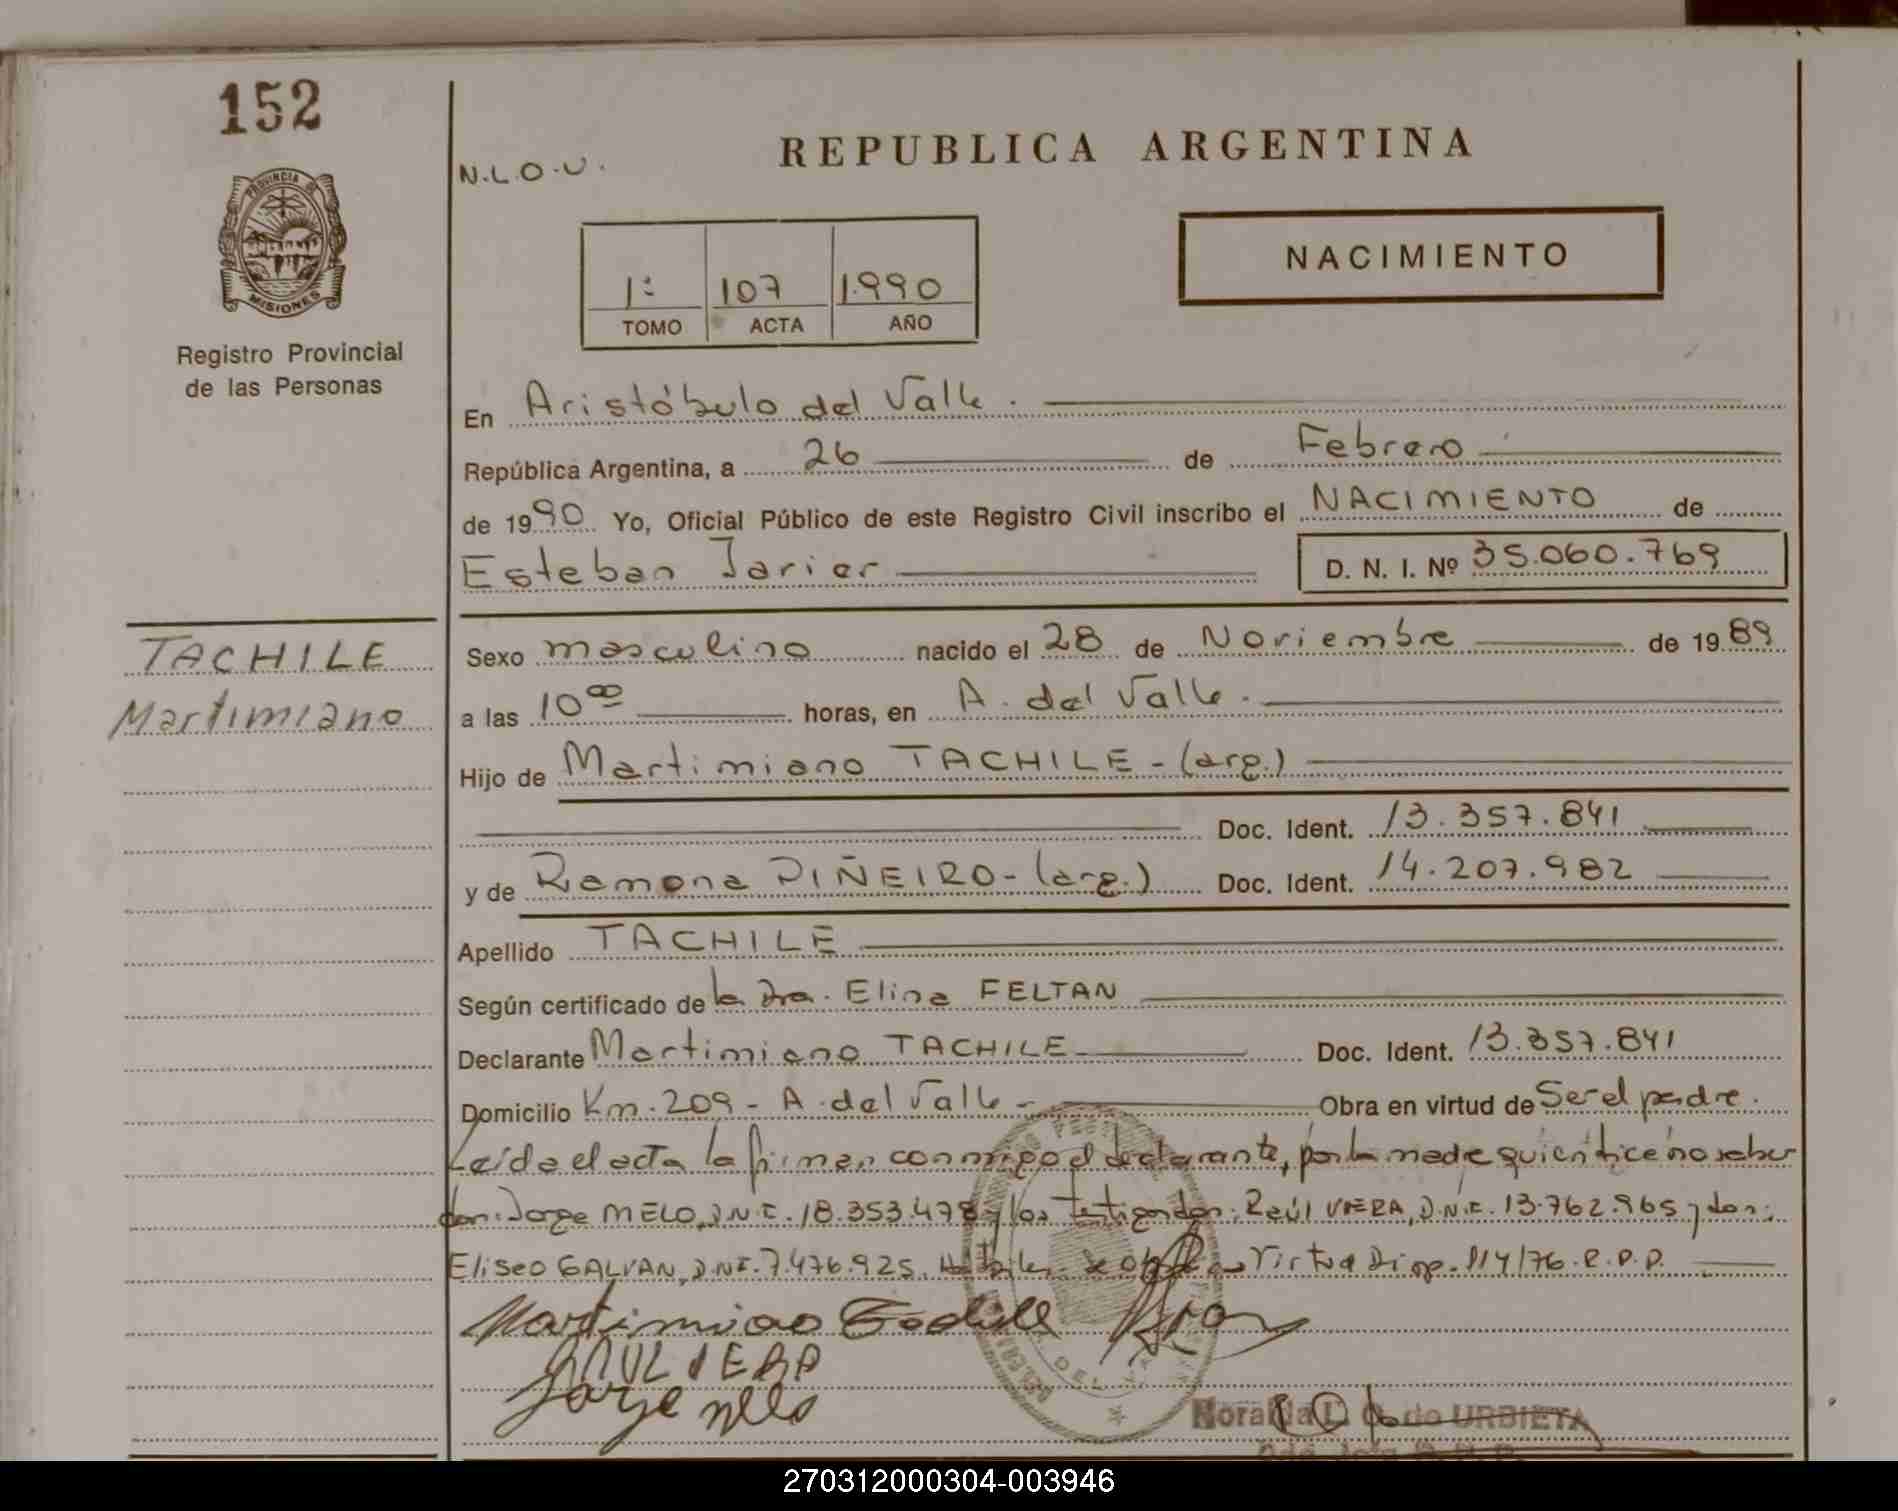 152
PROVINCIA DE
MISIONES
Registro Provincial
de las Personas
N.L.O.U.
REPUBLICA ARGENTINA
NACIMIENTO
1º 107 1.990
TOMO ACTA AÑO
En Aristóbulo del Valle.
República Argentina, a 26 de Febrero
de 1990 Yo, Oficial Público de este Registro Civil inscribo el NACIMIENTO de
Esteban Javier D. N. I. Nº 35.060.769
TACHILE
Martimiano
Sexo masculino nacido el 28 de Noviembre de 1989
a las 10 00 horas, en A. del Valle.
Hijo de Martimiano TACHILE - (arg.)
Doc. Ident. 13.357.841
y de Ramona PIÑEIRO - (arg.) Doc. Ident. 14.207.982
Apellido TACHILE
Según certificado de la Dra. Elina FELTAN
Declarante Martimiano TACHILE Doc. Ident. 13.357.841
Domicilio Km. 209 - A. del Valle - Obra en virtud de Ser el padre.
Leída el acta la firman conmigo el declarante, por la madre quien dice no saber
don: Jorge MELO, D.N.I. 18.353.478 y los testigos don: Raúl VIERA, D.N.I. 13.762.965 y don:
Eliseo GALVAN, D.N.I. 7.476.925. Virtud Disp. 114/76. R.P.P.
Martimiano Tachile
RAUL VIERA
Jorge Melo
DEL VA
Noralda de URBIETA
270312000304-003946